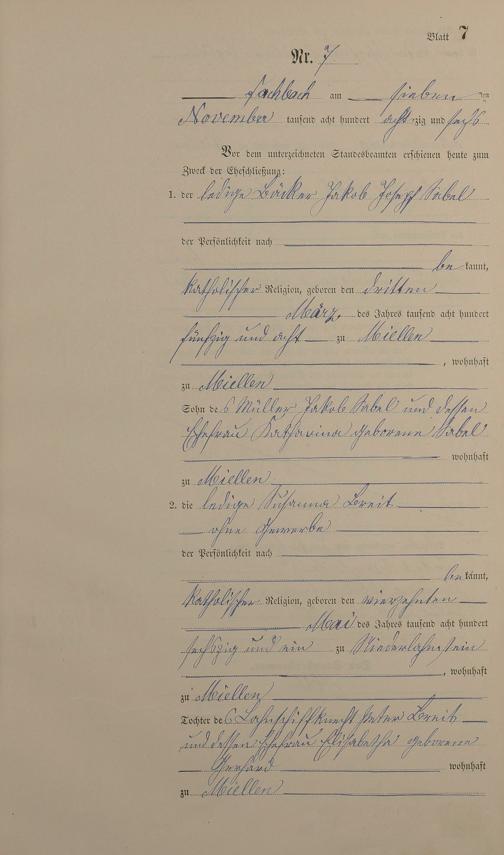 Blatt 7
Nr. 7
Fachbach am sieben ten
November tausend acht hundert acht zig und sechs
Vor dem unterzeichneten Standesbeamten erschienen heute zum
Zweck der Eheschließung:
1. der ledige Bäcker Jakob Joseph Sabel
der Persönlichkeit nach
be kannt,
katholischer Religion, geboren den dritten
März des Jahres tausend acht hundert
fünfzig und acht zu Miellen
, wohnhaft
zu Miellen
Sohn des Müller Jakob Sabel und dessen
Ehefrau Katharina geborene Sabel
wohnhaft
zu Miellen
2. die ledige Susanna Breit
ohne Gewerbe
der Persönlichkeit nach
be kannt,
katholischer Religion, geboren den vierzehnten
Mai des Jahres tausend acht hundert
sechszig und ein zu Niederlahnstein
, wohnhaft
zu Miellen
Tochter des Lahnschiffknecht Peter Breit
und dessen Ehefrau Elisabetha geborene
Gerhard wohnhaft
zu Miellen